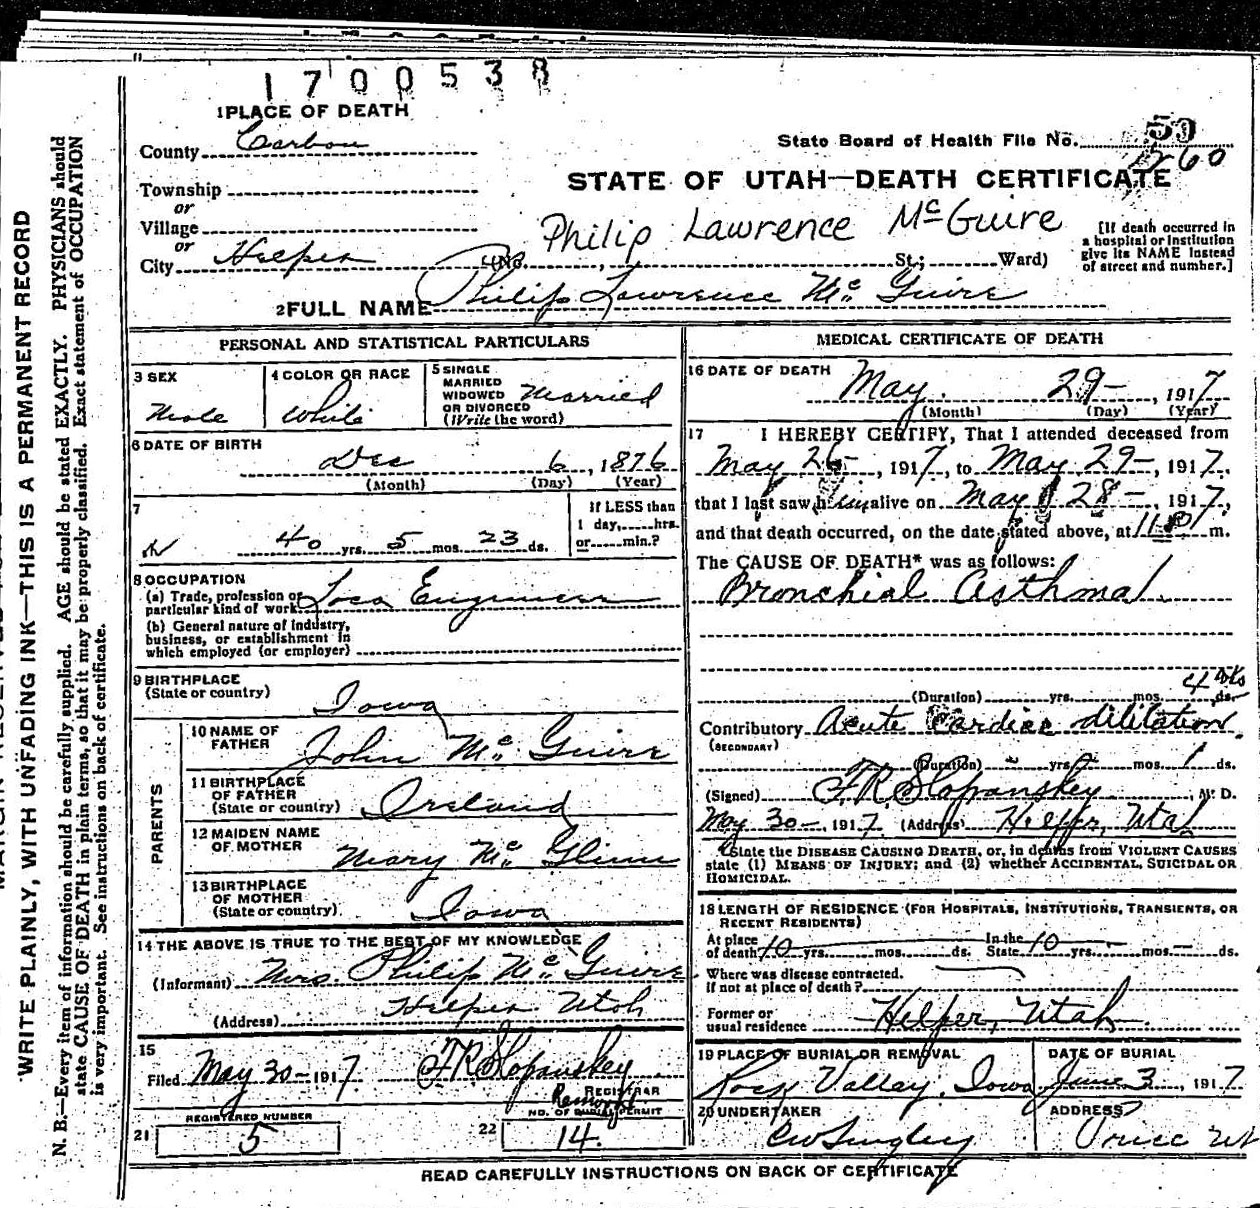 1700538
1 PLACE OF DEATH
County Carbon
State Board of Health File No. 59
260
Township
or
STATE OF UTAH—DEATH CERTIFICATE
Village
or
Philip Lawrence McGuire
City Helper (No. , St.; Ward)
[If death occurred in
a hospital or institution
give its NAME instead
of street and number.]
2 FULL NAME Philip Lawrence McGuire
PERSONAL AND STATISTICAL PARTICULARS
3 SEX
Male
4 COLOR OR RACE
White
5 SINGLE
MARRIED
WIDOWED
OR DIVORCED
(Write the word)
Married
6 DATE OF BIRTH
Dec 6, 1876
(Month) (Day) (Year)
7
40 yrs. 5 mos. 23 ds.
If LESS than
1 day, hrs.
or min.?
8 OCCUPATION
(a) Trade, profession or
particular kind of work Loco Engineer
(b) General nature of industry,
business, or establishment in
which employed (or employer)
9 BIRTHPLACE
(State or country)
Iowa
PARENTS
10 NAME OF
FATHER
John McGuire
11 BIRTHPLACE
OF FATHER
(State or country) Ireland
12 MAIDEN NAME
OF MOTHER
Mary McGlinn
13 BIRTHPLACE
OF MOTHER
(State or country) Iowa
14 THE ABOVE IS TRUE TO THE BEST OF MY KNOWLEDGE
(Informant) Mrs. Philip McGuire
(Address) Helper Utah
15
Filed May 30- 1917 F R Slopanskey
REGISTRAR
Removal
REGISTERED NUMBER
21 5
NO. OF BURIAL PERMIT
22 14.
MEDICAL CERTIFICATE OF DEATH
16 DATE OF DEATH
May 29-, 1917
(Month) (Day) (Year)
17 I HEREBY CERTIFY, That I attended deceased from
May 26-, 1917, to May 29-, 1917,
that I last saw him alive on May 28-, 1917,
and that death occurred, on the date stated above, at 11 P m.
The CAUSE OF DEATH* was as follows:
Bronchial Asthma
(Duration) yrs. mos. 4 wks ds.
Contributory Acute Cardiac dilitation.
(SECONDARY)
(Duration) - yrs. - mos. 1 ds.
(Signed) F R Slopanskey, M. D.
May 30-, 1917 (Address) Helper, Utah
State the DISEASE CAUSING DEATH, or, in deaths from VIOLENT CAUSES
state (1) MEANS OF INJURY; and (2) whether ACCIDENTAL, SUICIDAL OR
HOMICIDAL.
18 LENGTH OF RESIDENCE (FOR HOSPITALS, INSTITUTIONS, TRANSIENTS, OR
RECENT RESIDENTS)
At place
of death 10 yrs. mos. ds.
In the
State 10 yrs. mos. - ds.
Where was disease contracted.
if not at place of death?
Former or
usual residence Helper, Utah
19 PLACE OF BURIAL OR REMOVAL
Rock Valley, Iowa
DATE OF BURIAL
June 3, 1917
20 UNDERTAKER
ADDRESS
READ CAREFULLY INSTRUCTIONS ON BACK OF CERTIFICATE
WRITE PLAINLY, WITH UNFADING INK—THIS IS A PERMANENT RECORD
N. B.—Every item of information should be carefully supplied. AGE should be stated EXACTLY. PHYSICIANS should
state CAUSE OF DEATH in plain terms, so that it may be properly classified. Exact statement of OCCUPATION
is very important. See instructions on back of certificate.